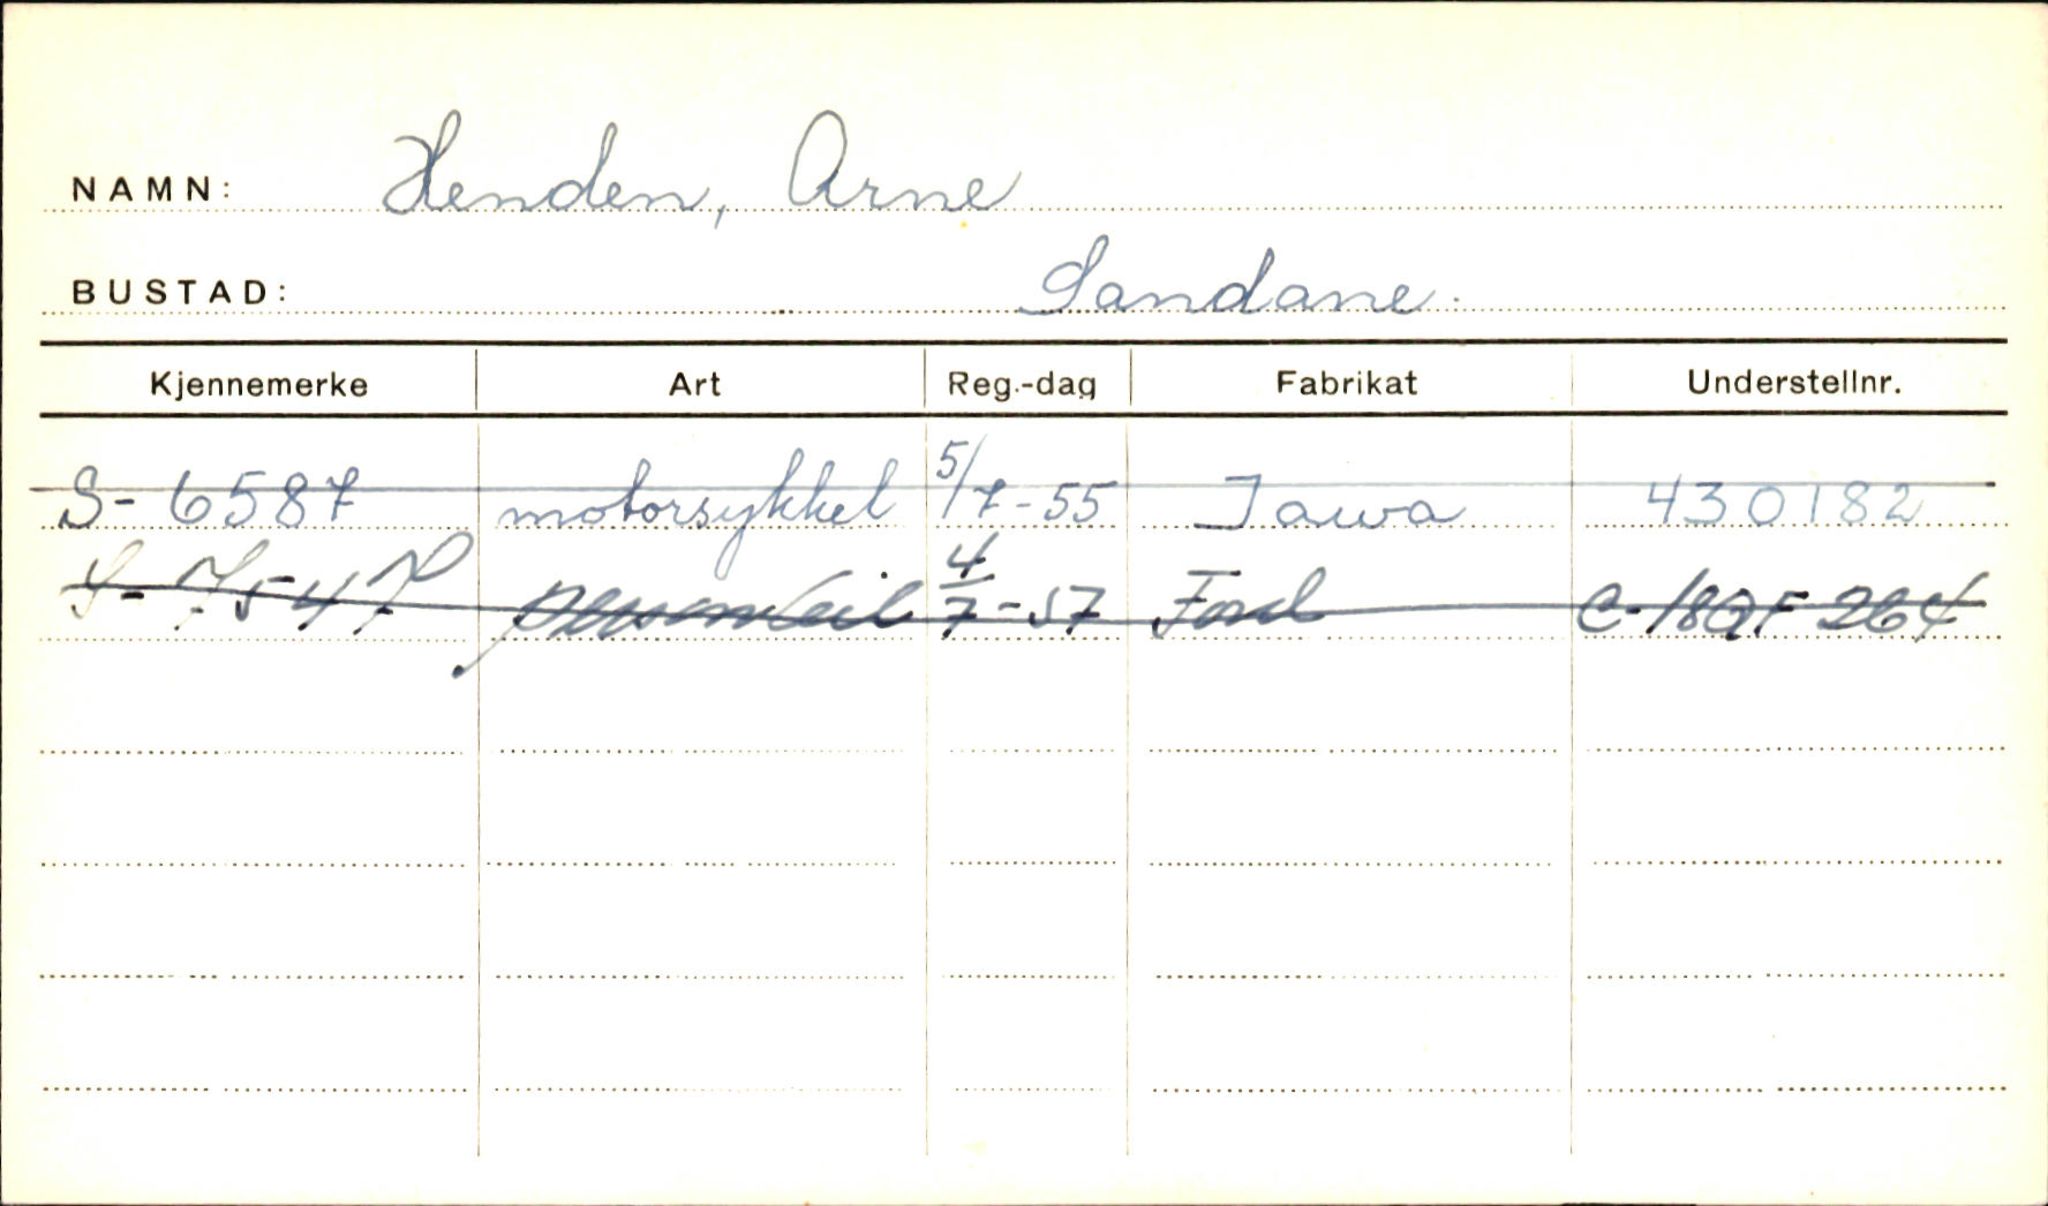 NAMN: Henden, Arne
BUSTAD: Sandane.
Kjennemerke Art Reg.-dag Fabrikat Understellnr.
S-6587 motorsykkel 5/7-55 Jawa 430182
S-7547 personbil 4/7-57 Ford C-18QF 264